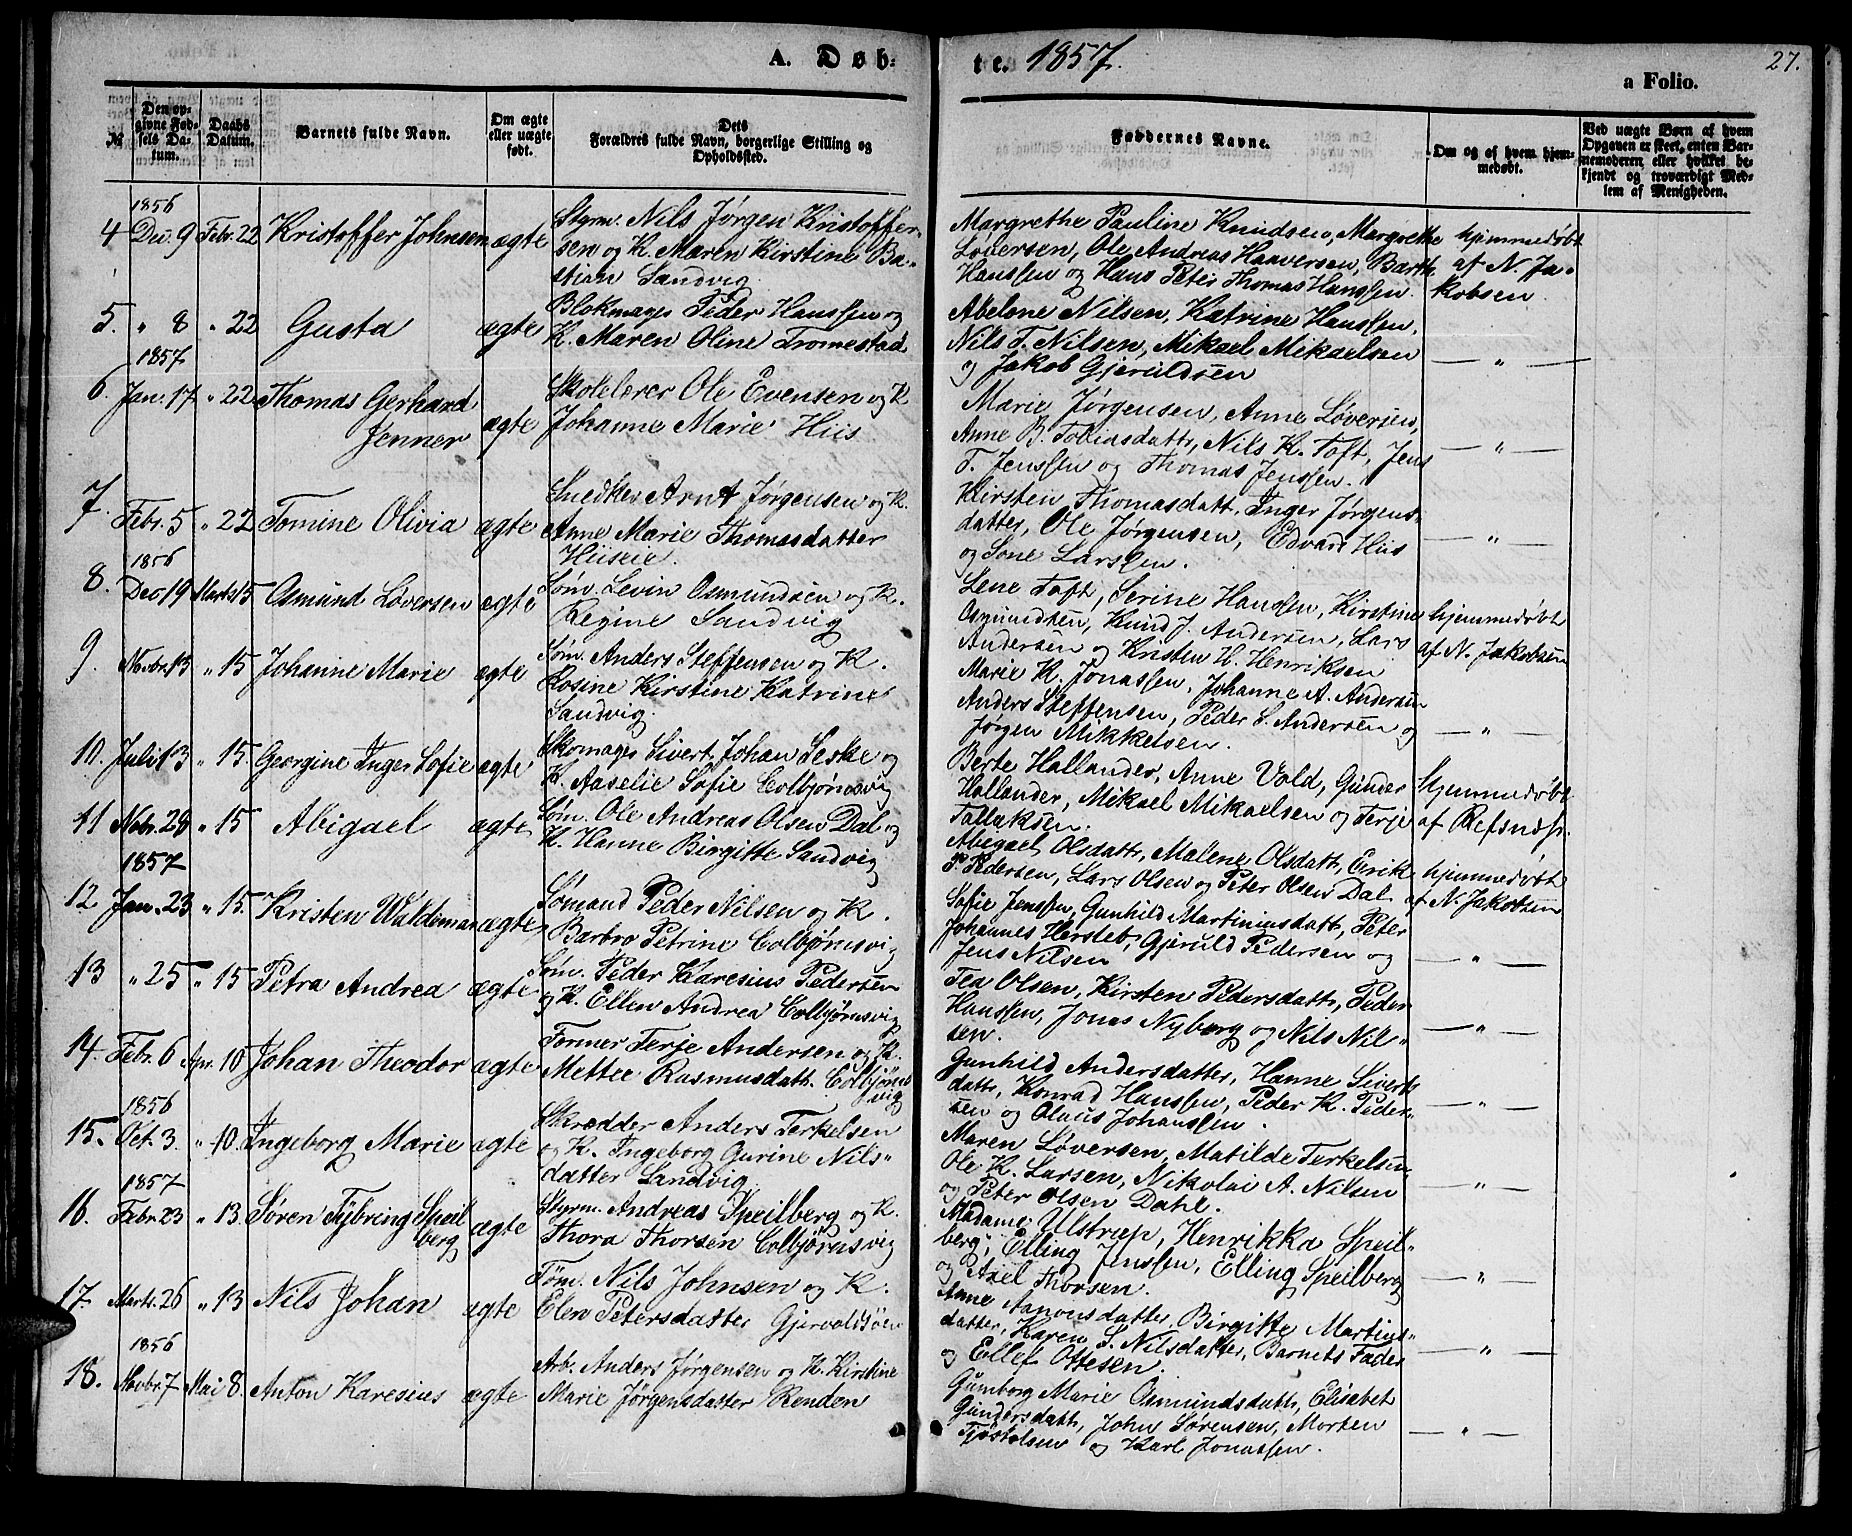 A. Døb=
te. 1857.
27.
a Folio.
№
Den op-
givne Fød-
sels Da-
tum.
Daabs
Datum.
Barnets fulde Navn.
Om ægte
eller uægte
født.
Dets
Forældres fulde Navn, borgerlige Stilling og
Opholdssted.
Faddernes Navne.
Om og af hvem hjem-
medøbt.
Ved uægte Børn af hvem
Opgaven er skeet, enten Bar-
nemoderen, eller hvilket be-
kjendt og troværdigt Med-
lem af Menigheden.
1856
4 Dec. 9 Febr. 22 Kristoffer Johnsen ægte
Styrm. Nils Jørgen Kristoffer-
sen og K. Maren Kirstine Ba-
stian Sandvig
Margrethe Pauline Knudsen, Margrethe
Løversen, Ole Andreas Haaversen, Barth.
Hanssen og Hans Peter Thomas Hanssen.
hjemmedøbt
af N. Ja-
kobsen
5. " 8 " 22 Gusta ægte
Blokmager Peder Hanssen og
K. Maren Oline Tromestad
Abelone Nilsen, Katrine Hanssen,
Nils T. Nilsen, Mikael Mikaelsen
og Jakob Gjeruldsen
— " —
1857
6. Jan. 17 " 22 Thomas Gerhard
Jenner ægte
Skolelærer Ole Evensen og K
Johanne Marie Hiis
Marie Jørgensen, Anne Løversen,
Anne B. Tobiasdattr, Nils K. Toft, Jens
T. Jenssen og Thomas Jenssen.
— " —
7. Febr. 5 " 22 Tomine Olivia ægte
Snedker Arnt Jørgensen og K.
Anne Marie Thomasdatter
Hiiseie.
Kirsten Thomasdatt, Inger Jørgens-
datter, Ole Jørgensen, Edvard Hiis
og Sone Larssen.
— " —
1856
8. Dec 19 Marts 15 Osmund Løversen ægte
Søm. Levin Osmundsen og K.
Regine Sandvig
Lene Toft, Serine Hanssen, Kirstine
Osmundsen, Knud J. Andersen, Lars
Andersen og Kristen H. Henriksen
hjemmedøbt
af N. Jakobsen
9. Novbr. 13 " 15 Johanne Marie ægte
Søm. Anders Steffensen og K.
Rosine Kirstine Katrine
Sandvig.
Marie K. Jonassen, Johanne A. Andersen
Anders Steffensen, Peder S. Andersen og
Jørgen Mikkelsen.
— " —
10. Juli 13 " 15. Georgine Inger Sofie ægte
Skomager Sivert Johan Seske og
K. Aaselie Sofie Colbjørnsvig
Berte Hallander, Anne Vold, Gunder
Hallander, Mikael Mikaelsen og Terje
Tallaksen.
Hjemmedøbt
af Refsnæs.
11 Nobr. 28 " 15 Abigael ægte
Søm. Ole Andreas Olsen Dal og
K. Hanne Birgitte Sandvig
Abegael Olsdattr, Malene Olsdatt, Erik
P. Pedersen, Lars Olsen og Peter Olsen Dal
hjemmedøbt
af N. Jakobsen
1857
12 Jan. 23 " 15. Kristen Waldemar ægte
Sømand Peder Nilsen og K.
Barbro Petrine Colbjørnsvig
Sofie Jenssen, Gunhild Martiniusdatt, Peter
Johannes Hersleb, Gjeruld Pedersen og
Jens Nilsen
— " —
13 " 25 " 15 Petra Andrea ægte
Søm. Peder Karesius Pedersen
og K. Ellen Andrea Colbjørnsvig
Tea Olsen, Kirsten Pedersdatt, Peder
Hanssen, Jonas Nyberg og Nils Nil-
sen.
— " —
14. Febr. 6 Apr. 10 Johan Theodor ægte
Former Terje Andersen og K.
Mettee Rasmusdatt. Colbjørns
vig
Gunhild Andersdatter, Hanne Siverts
datt, Konrad Hanssen, Peder K. Peder-
sen og Olaus Johanssen.
— " —
1856
15. Oct. 3 " 10. Ingeborg Marie ægte
Skrædder Anders Terkelsen
og K. Ingeborg Gurine Nils-
datter Sandvig
Maren Løversen, Matilde Terkelsen,
Ole K. Larsen, Nikolai A. Nilsen
og Peter Olsen Dahl.
— " —
1857
16. Febr. 23 " 13. Søren Tybring Speil
berg ægte
Styrm. Andreas Speilberg og K.
Thora Thorsen Colbjørnsvig
Madame Ulstrup, Henrikka Speil-
berg, Elling Jenssen, Elling Speilberg
og Axel Thorsen.
— " —
17. Marts. 26 " 13 Nils Johan ægte
Tøm. Nils Johnsen og K.
Elen Petersdatter Gjervoldsøen
Anne Aanonsdatter, Birgitte Martins-
datter, Karen S. Nilsdatter, Barnets Fader
og Ellef Ottesen.
— " —
1856
18. Novbr. 7 Mai 8. Anton Karesius ægte
Arb. Anders Jørgensen og K. Kirstine
Marie Jørgensdatter Renden
Gumborg Marie Osmundsdatt, Elisabet
Gundersdatt, John Sørensen, Morten
Tjøstolsen og Karl Jonassen.
— " —